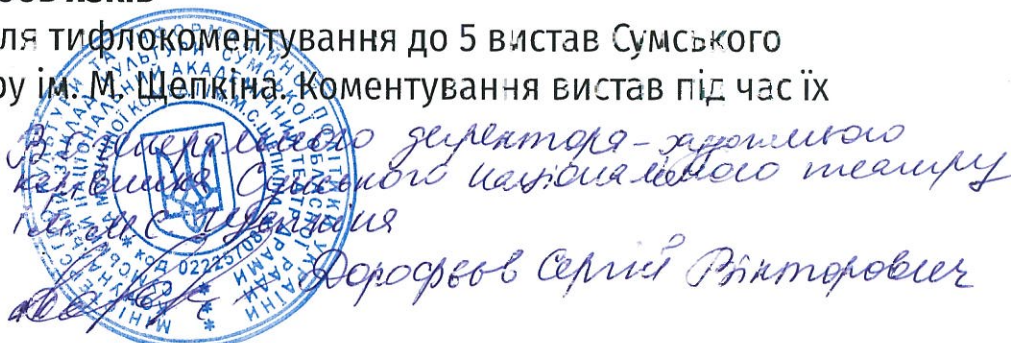 ля тифлокоментування до 5 вистав Сумського
ру ім. М. Щепкіна. Коментування вистав під час їх
В.о. генерального директора - художнього
керівника Сумського національного театру
ім. М. С. Щепкіна
Дорофєєв Сергій Вікторович